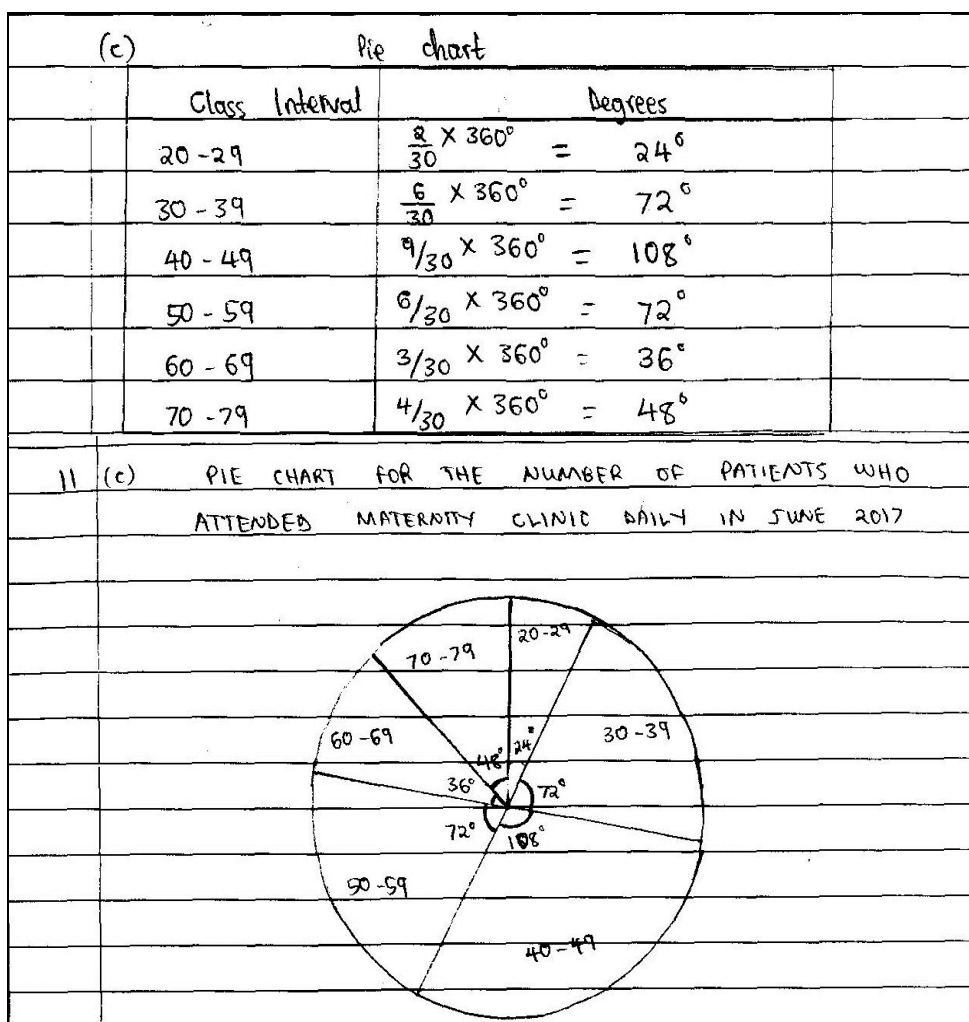 (c) Pie chart
Class Interval Degrees
20-29 2/30 × 360° = 24°
30-39 6/30 × 360° = 72°
40-49 9/30 × 360° = 108°
50-59 6/30 × 360° = 72°
60-69 3/30 × 360° = 36°
70-79 4/30 × 360° = 48°
11 (c) PIE CHART FOR THE NUMBER OF PATIENTS WHO
ATTENDED MATERNITY CLINIC DAILY IN JUNE 2017
20-29
70-79
60-69
30-39
48° 24°
36° 72°
72° 108°
50-59
40-49